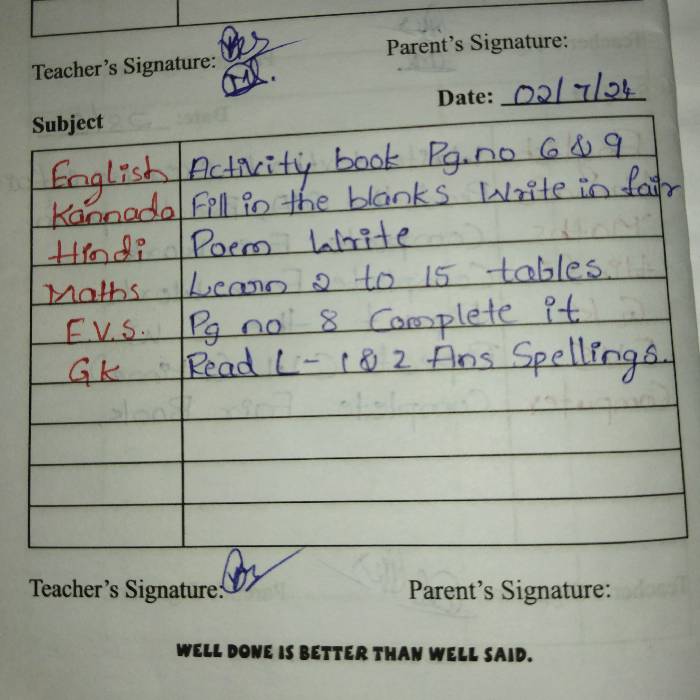 Teacher's Signature: Parent's Signature:
Date: 02/7/24
Subject
English Activity book Pg.no 6 & 9
Kannada Fill in the blanks Write in fair
Hindi Poem Write
Maths Learn 2 to 15 tables.
E.V.S. Pg no 8 Complete it
Gk Read L-1 & 2 Ans Spellings.
Teacher's Signature: Parent's Signature:
WELL DONE IS BETTER THAN WELL SAID.